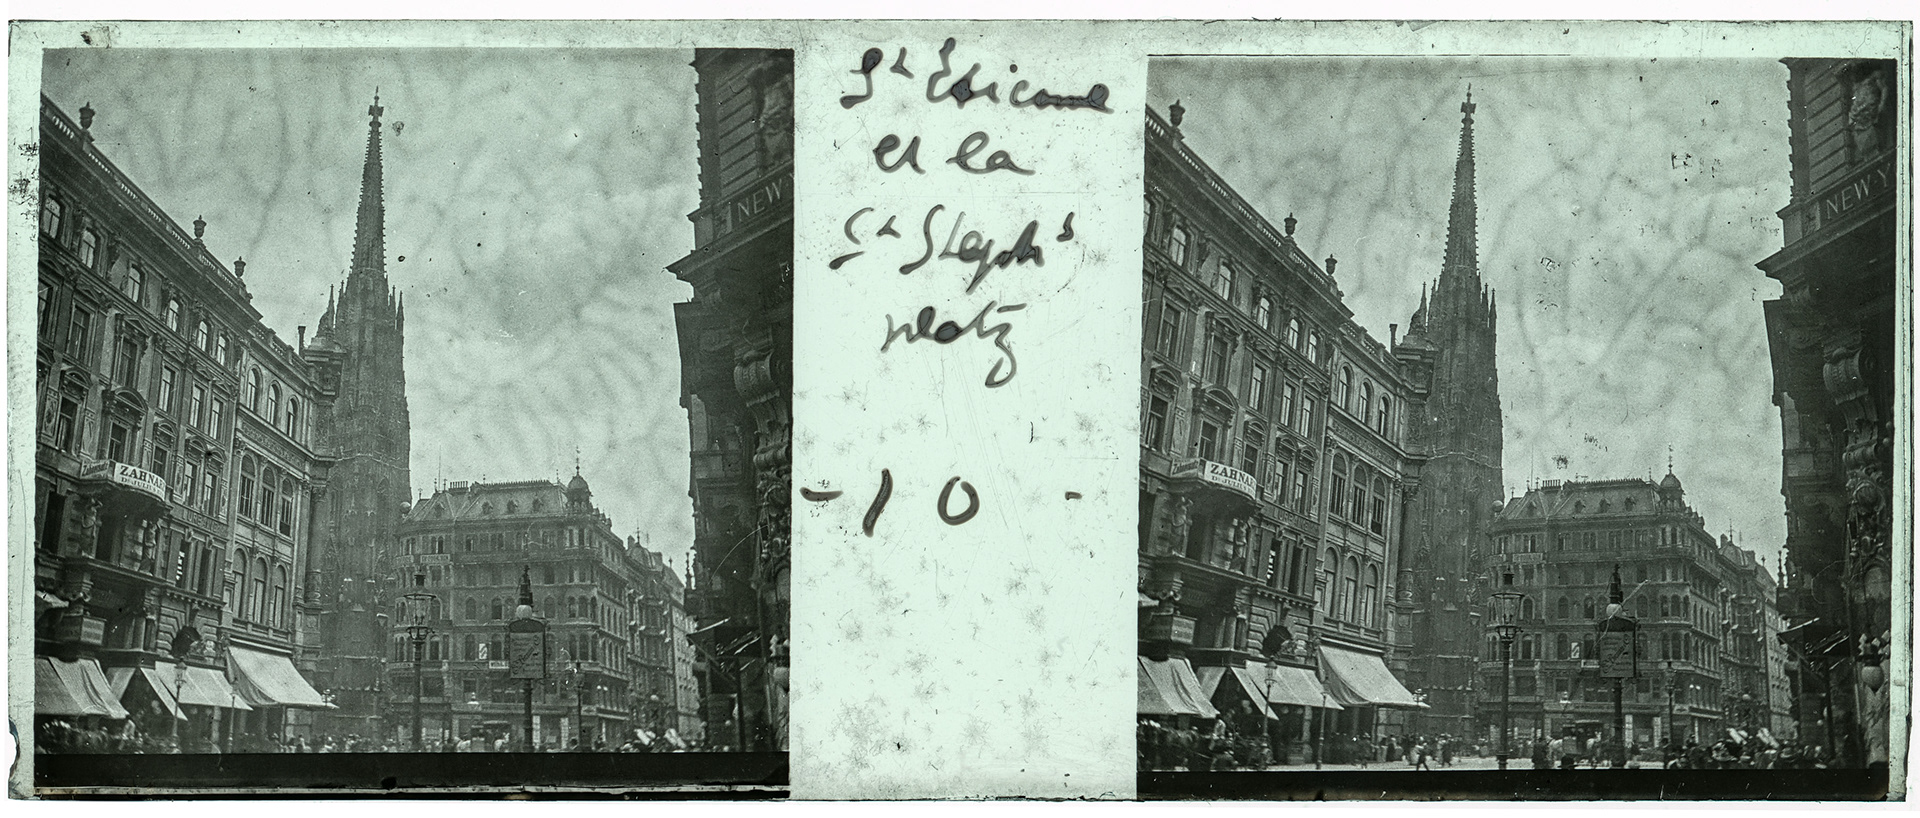 St Etienne
et la
St Steph's
platz
- 10 -
NEW
ZAHNA
Dr JULIUS
NEW-Y
ZAHNA
Dr JULIUS